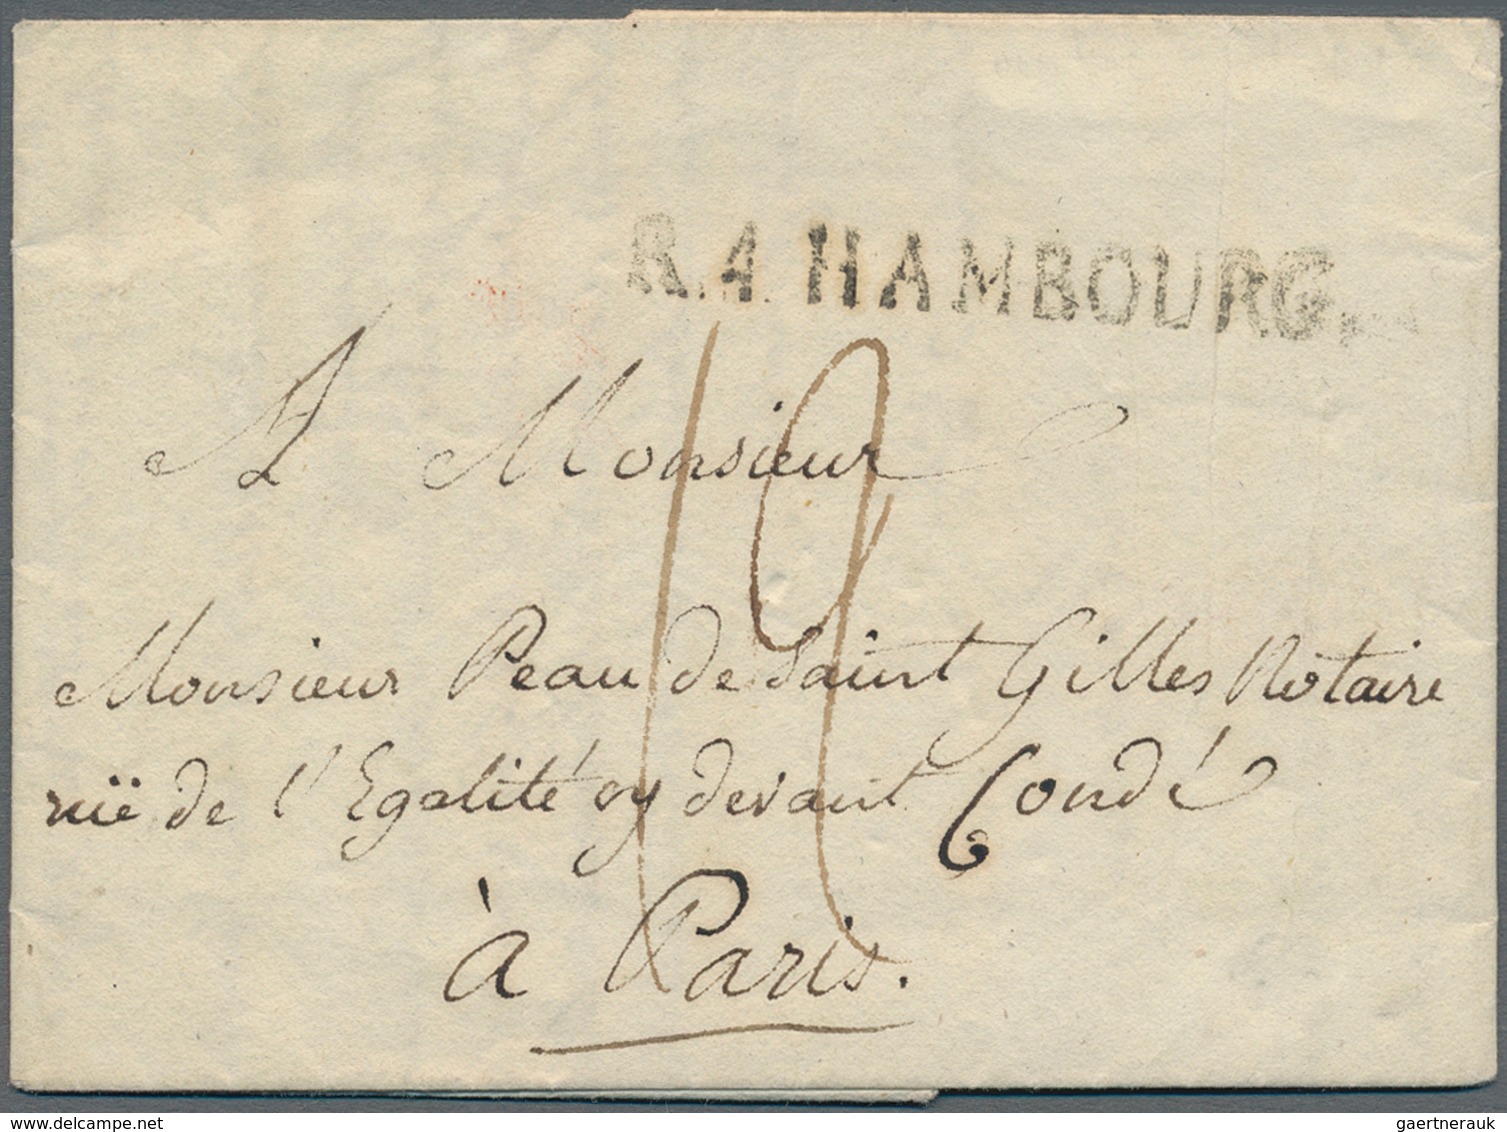 R.4 HAMBOURG.
A Monsieur
19
Monsieur Peau de Saint Gilles Notaire
ruë de l'Egalité cy devant Condé
à Paris.
www.delcampe.net
gaertnerauk